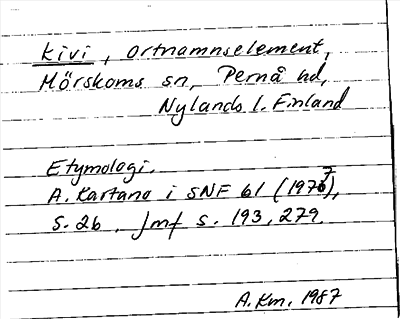 kivi, ortnamnselement,
Mörskoms sn, Pernå hd,
Nylands l. Finland
Etymologi.
A. Kartano i SNF 61 (1977),
s. 26. Jmf s. 193, 279.
A.Km. 1987